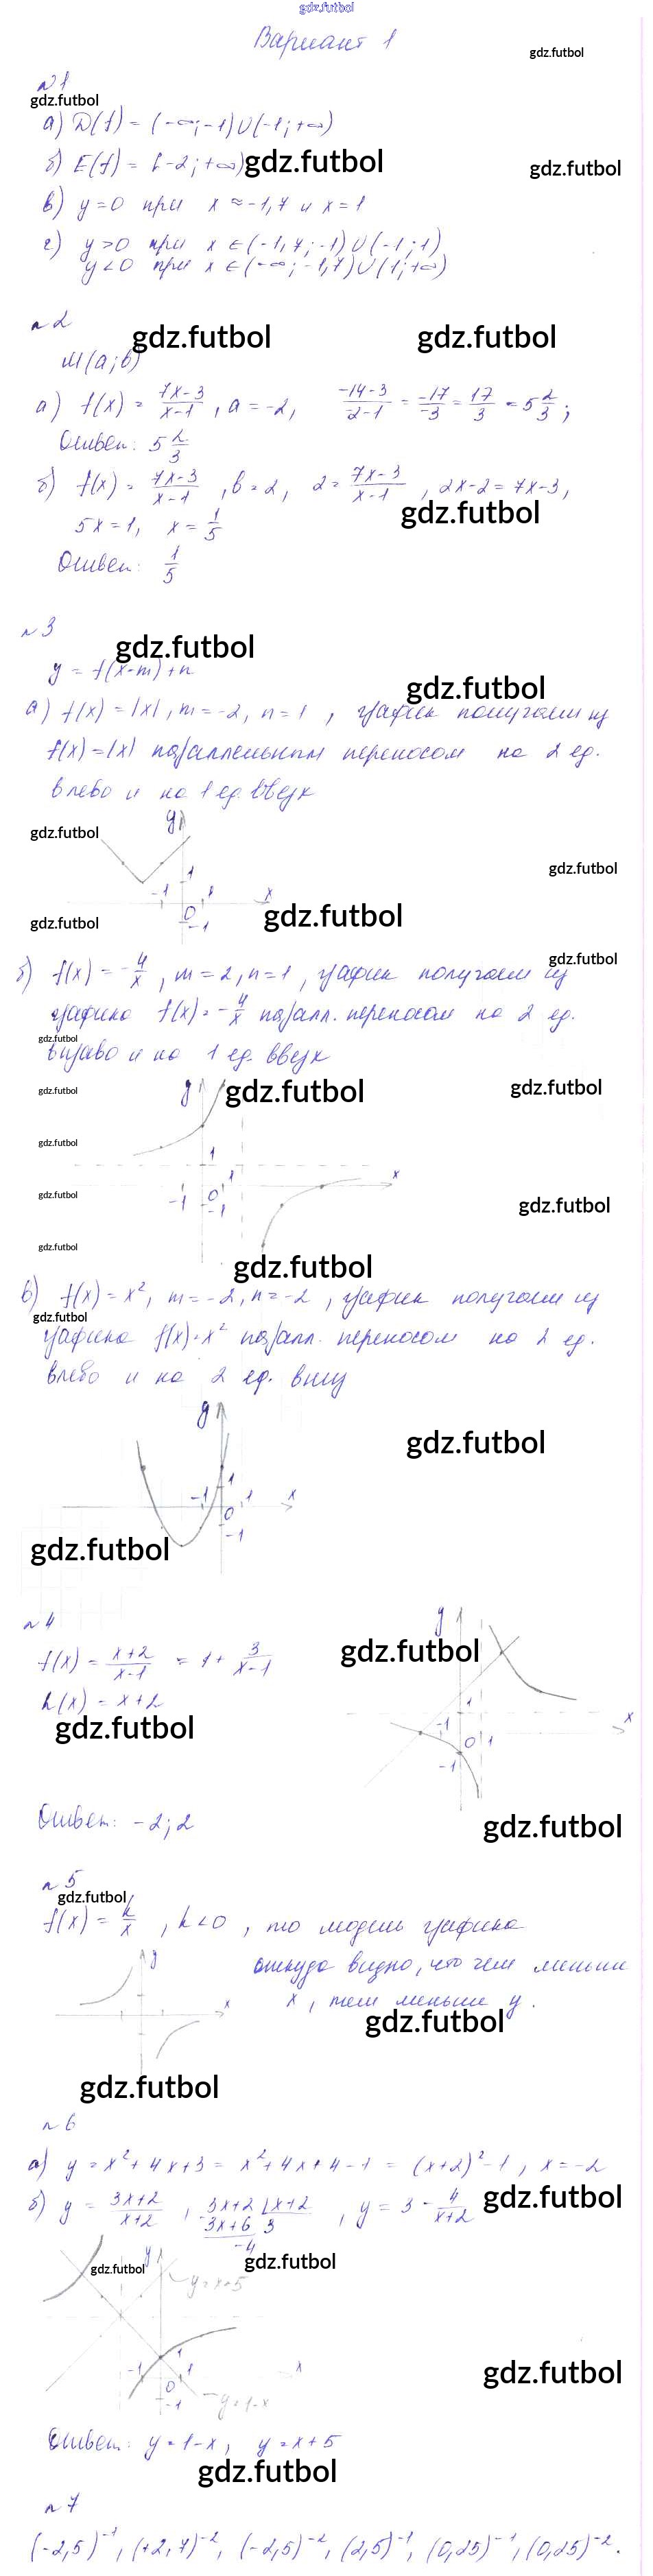 gdz.futbol
Вариант 1
gdz.futbol
№1
gdz.futbol
а) D(f) = (-∞; -1)∪(-1; +∞)
б) E(f) = [-2; +∞) gdz.futbol
gdz.futbol
в) y=0 при x ≈ -1,7 и x = 1
г) y>0 при x ∈ (-1,7; -1)∪(-1; 1)
y<0 при x ∈ (-∞; -1,7)∪(1; +∞)
№2
gdz.futbol gdz.futbol
M(a; b)
а) f(x) = (7x-3)/(x-1), a = -2, (-14-3)/(-2-1) = (-17)/(-3) = 17/3 = 5 2/3;
Ответ: 5 2/3
б) f(x) = (7x-3)/(x-1), b = 2, 2 = (7x-3)/(x-1), 2x-2 = 7x-3,
5x = 1, x = 1/5
gdz.futbol
Ответ: 1/5
№3
gdz.futbol
y = f(x-m)+n
gdz.futbol
а) f(x) = |x|, m = -2, n = 1, график получаем из
f(x) = |x| параллельным переносом на 2 ед.
влево и на 1 ед. вверх
y
gdz.futbol
gdz.futbol
1
-1 1 x
0
-1
gdz.futbol gdz.futbol
gdz.futbol
б) f(x) = -4/x, m = 2, n = 1, график получаем из
графика f(x) = -4/x паралл. переносом на 2 ед.
gdz.futbol
вправо и на 1 ед. вверх
y
gdz.futbol gdz.futbol gdz.futbol
gdz.futbol
1
1 x
-1 0
-1
gdz.futbol gdz.futbol
gdz.futbol
gdz.futbol
в) f(x) = x², m = -2, n = -2, график получаем из
gdz.futbol
графика f(x) = x² паралл. переносом на 2 ед.
влево и на 2 ед. вниз
y
gdz.futbol
1
-1 1 x
0
-1
gdz.futbol
№4
y
gdz.futbol
f(x) = (x+2)/(x-1) = 1 + 3/(x-1)
h(x) = x+2
gdz.futbol
1
x
-1
0 1
-1
Ответ: -2; 2
gdz.futbol
№5
gdz.futbol
f(x) = k/x, k<0, то модель графика
y
откуда видно, что чем меньше
x
x, тем меньше y.
gdz.futbol
gdz.futbol
№6
а) y = x²+4x+3 = x²+4x+4-1 = (x+2)²-1, x = -2
б) y = (3x+2)/(x+2), 3x+2 | x+2
3x+6 3
-4
, y = 3 - 4/(x+2)
gdz.futbol
y
gdz.futbol gdz.futbol
y=x+5
1
-1 1 x
0
-1
y=1-x
gdz.futbol
Ответ: y = 1-x, y = x+5
gdz.futbol
№7
(-2,5)⁻¹, (+2,7)⁻², (-2,5)⁻², (2,5)⁻¹, (0,25)⁻¹, (0,25)⁻².